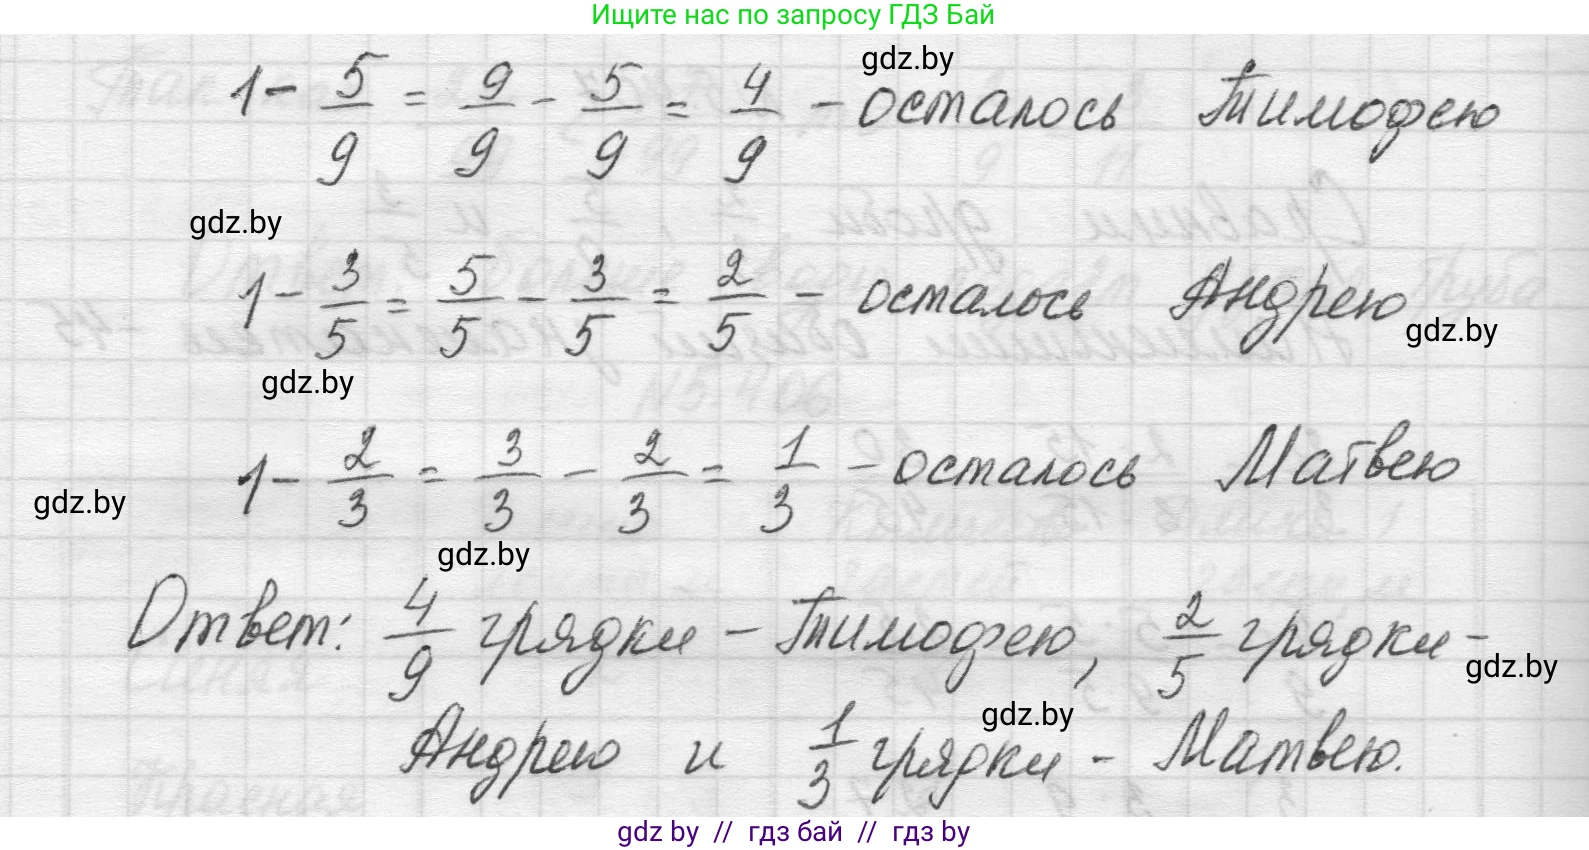 Ищите нас по запросу ГДЗ Бай
gdz.by
1 - 5/9 = 9/9 - 5/9 = 4/9 - осталось Тимофею
gdz.by
1 - 3/5 = 5/5 - 3/5 = 2/5 - осталось Андрею
gdz.by
gdz.by
1 - 2/3 = 3/3 - 2/3 = 1/3 - осталось Матвею
gdz.by
gdz.by
Ответ: 4/9 грядки - Тимофею, 2/5 грядки -
gdz.by
gdz.by
Андрею и 1/3 грядки - Матвею.
gdz by // гдз бай // гдз by